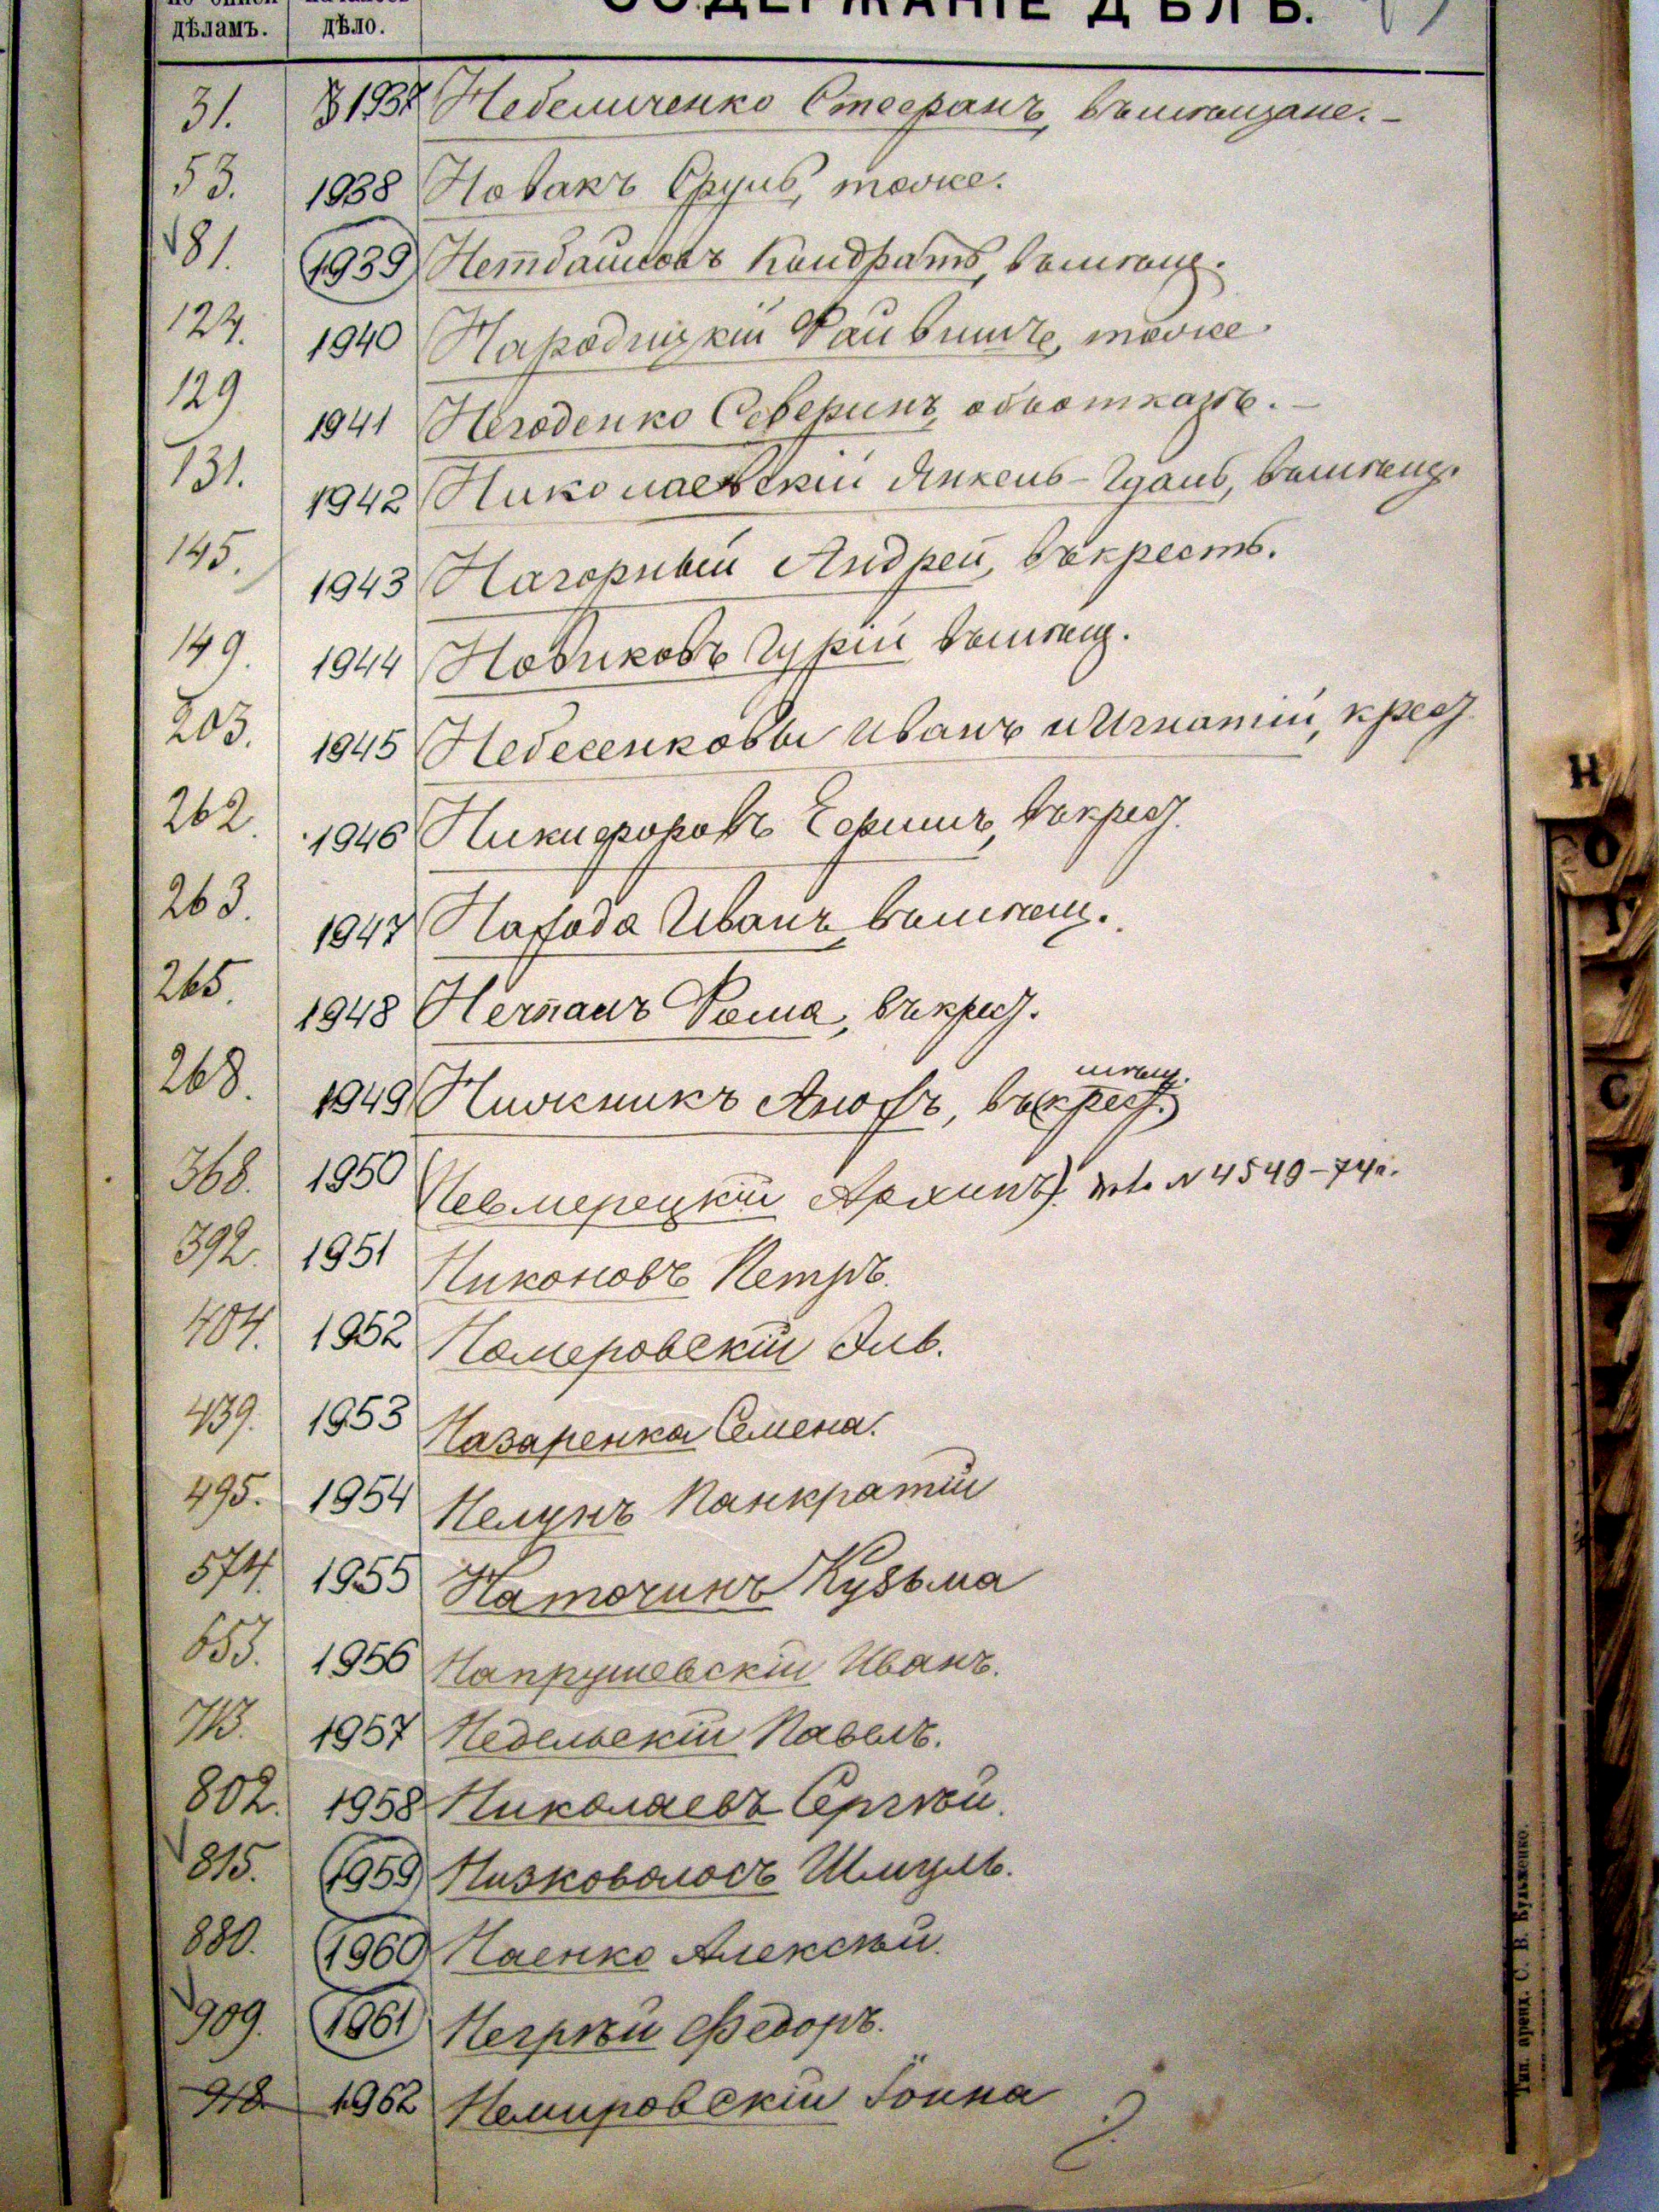 дѣламъ. дѣло. СОДЕРЖАНІЕ ДѢЛЪ.
31. 1937 Небеличенко Стефанъ, въ мѣщане. –
53. 1938 Новакъ Сруль, тоже.
81. 1939 Кондратъ, въ мѣщ.
124. 1940 Народицкій Файвишъ, тоже.
129 1941 Негоденко Северинъ, объ отказѣ. –
131. 1942 Николаевскій Янкель-Гдаль, въ мѣщ.
145. 1943 Нагорный Андрей, въ крестъ.
149. 1944 Новиковъ Гурій въ мѣщ.
203. 1945 Небесенковы Иванъ и Игнатій, крест.
262. 1946 Никифоровъ Ефимъ, въ крест.
263. 1947 Иванъ, въ мѣщ.
265. 1948 Фома, въ крест.
268. 1949 Нижникъ въ (крест.) мѣщ.
368. 1950 (Невмерецкій Архипъ). № 4549–74 г.
392. 1951 Никоновъ Петръ.
404. 1952 Номеровскій Эль.
439. 1953 Назаренка Семена.
495. 1954 Нелунъ Панкратій
574. 1955 Наточинъ Кузьма
653. 1956 Напрушевскій Иванъ.
713. 1957 Недельскій Павелъ.
802. 1958 Николаевъ Сергѣй.
815. 1959 Низковолосъ Шмуль.
880. 1960 Наенко Алексѣй.
909. 1961 Негрѣй Федоръ.
918. 1962 Немировскій Іонна ?
Н
О
Т
С
Тип. аренд. С. В. Кульженко.